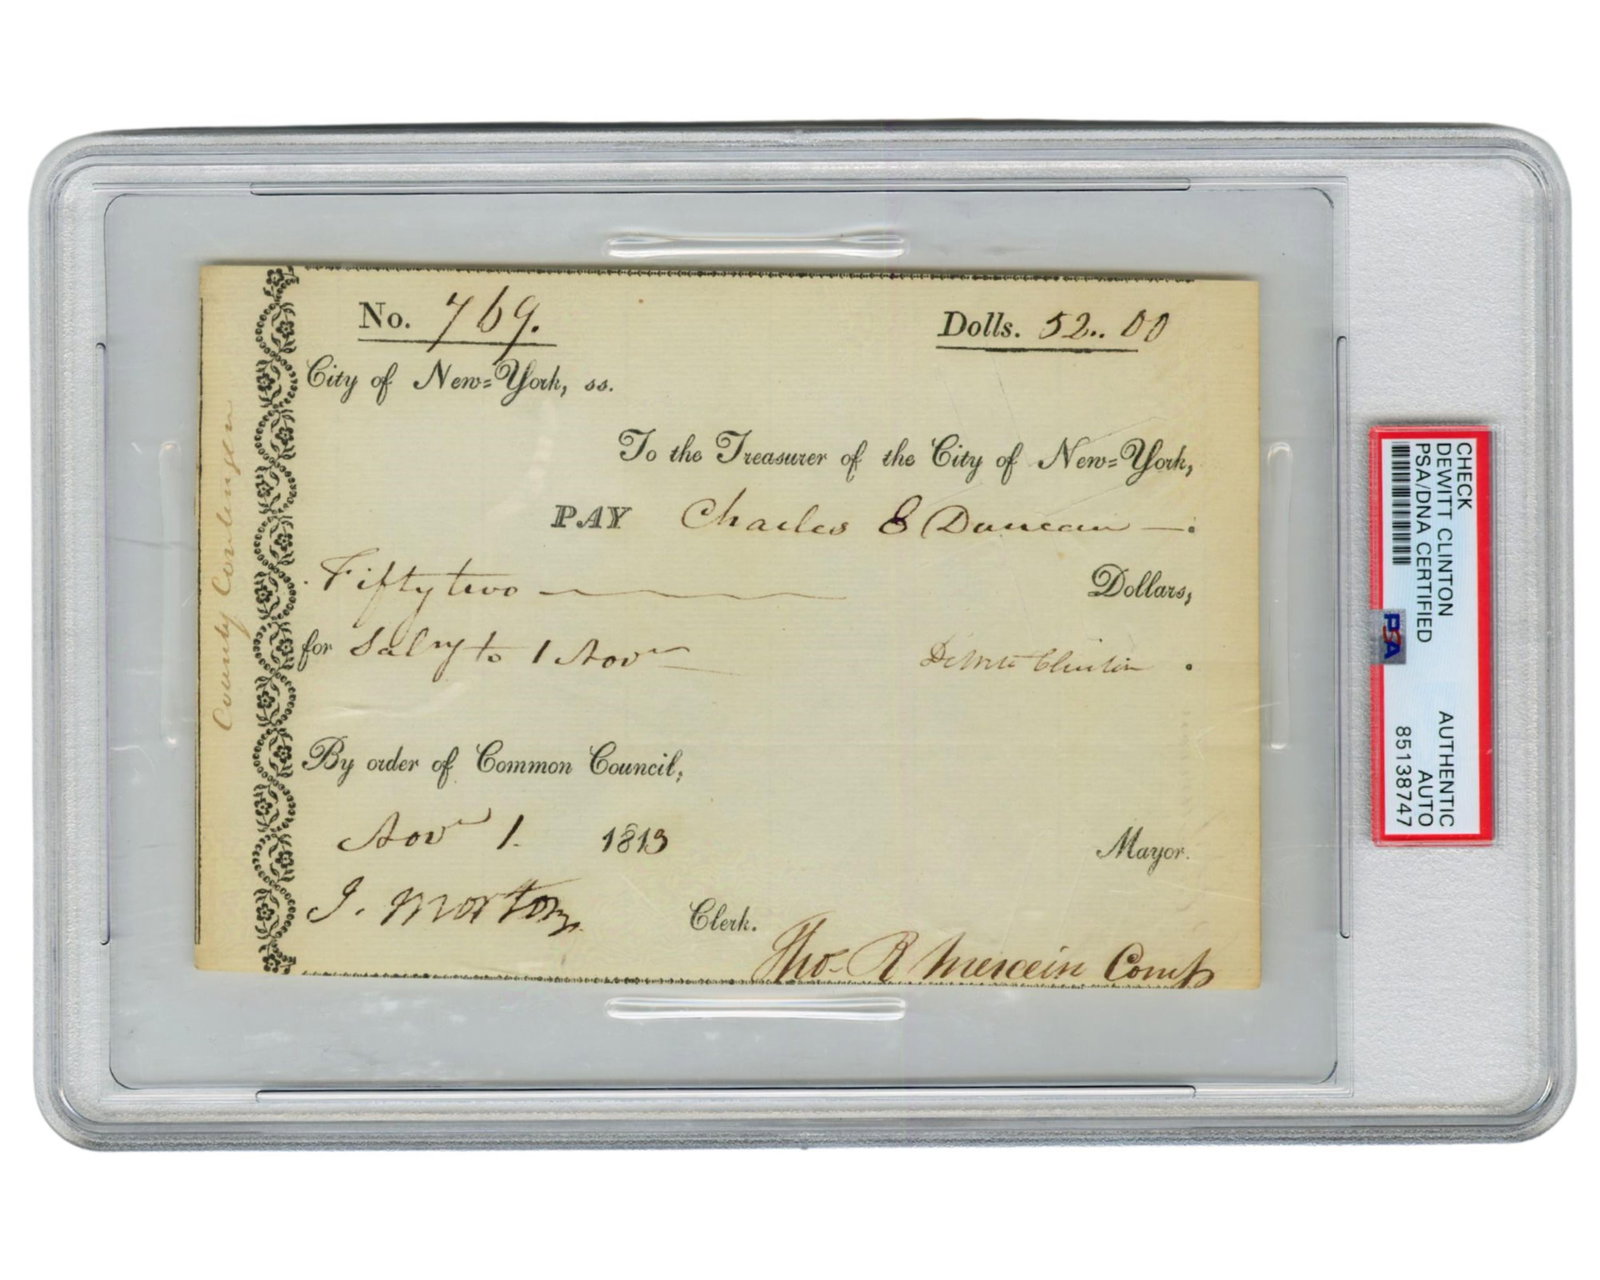 No. 769.
Dolls. 52..00
City of New=York, ss.
To the Treasurer of the City of New=York,
PAY Charles E Duncan —.
Fifty two ——— Dollars,
for Saly to 1 Novr
DeWitt Clinton .
By order of Common Council,
Novr 1. 1813
Mayor.
J. Morton, Clerk.
Tho. R Mercein Comp
County Contingen
CHECK
DEWITT CLINTON
PSA/DNA CERTIFIED
PSA
AUTHENTIC
AUTO
85138747